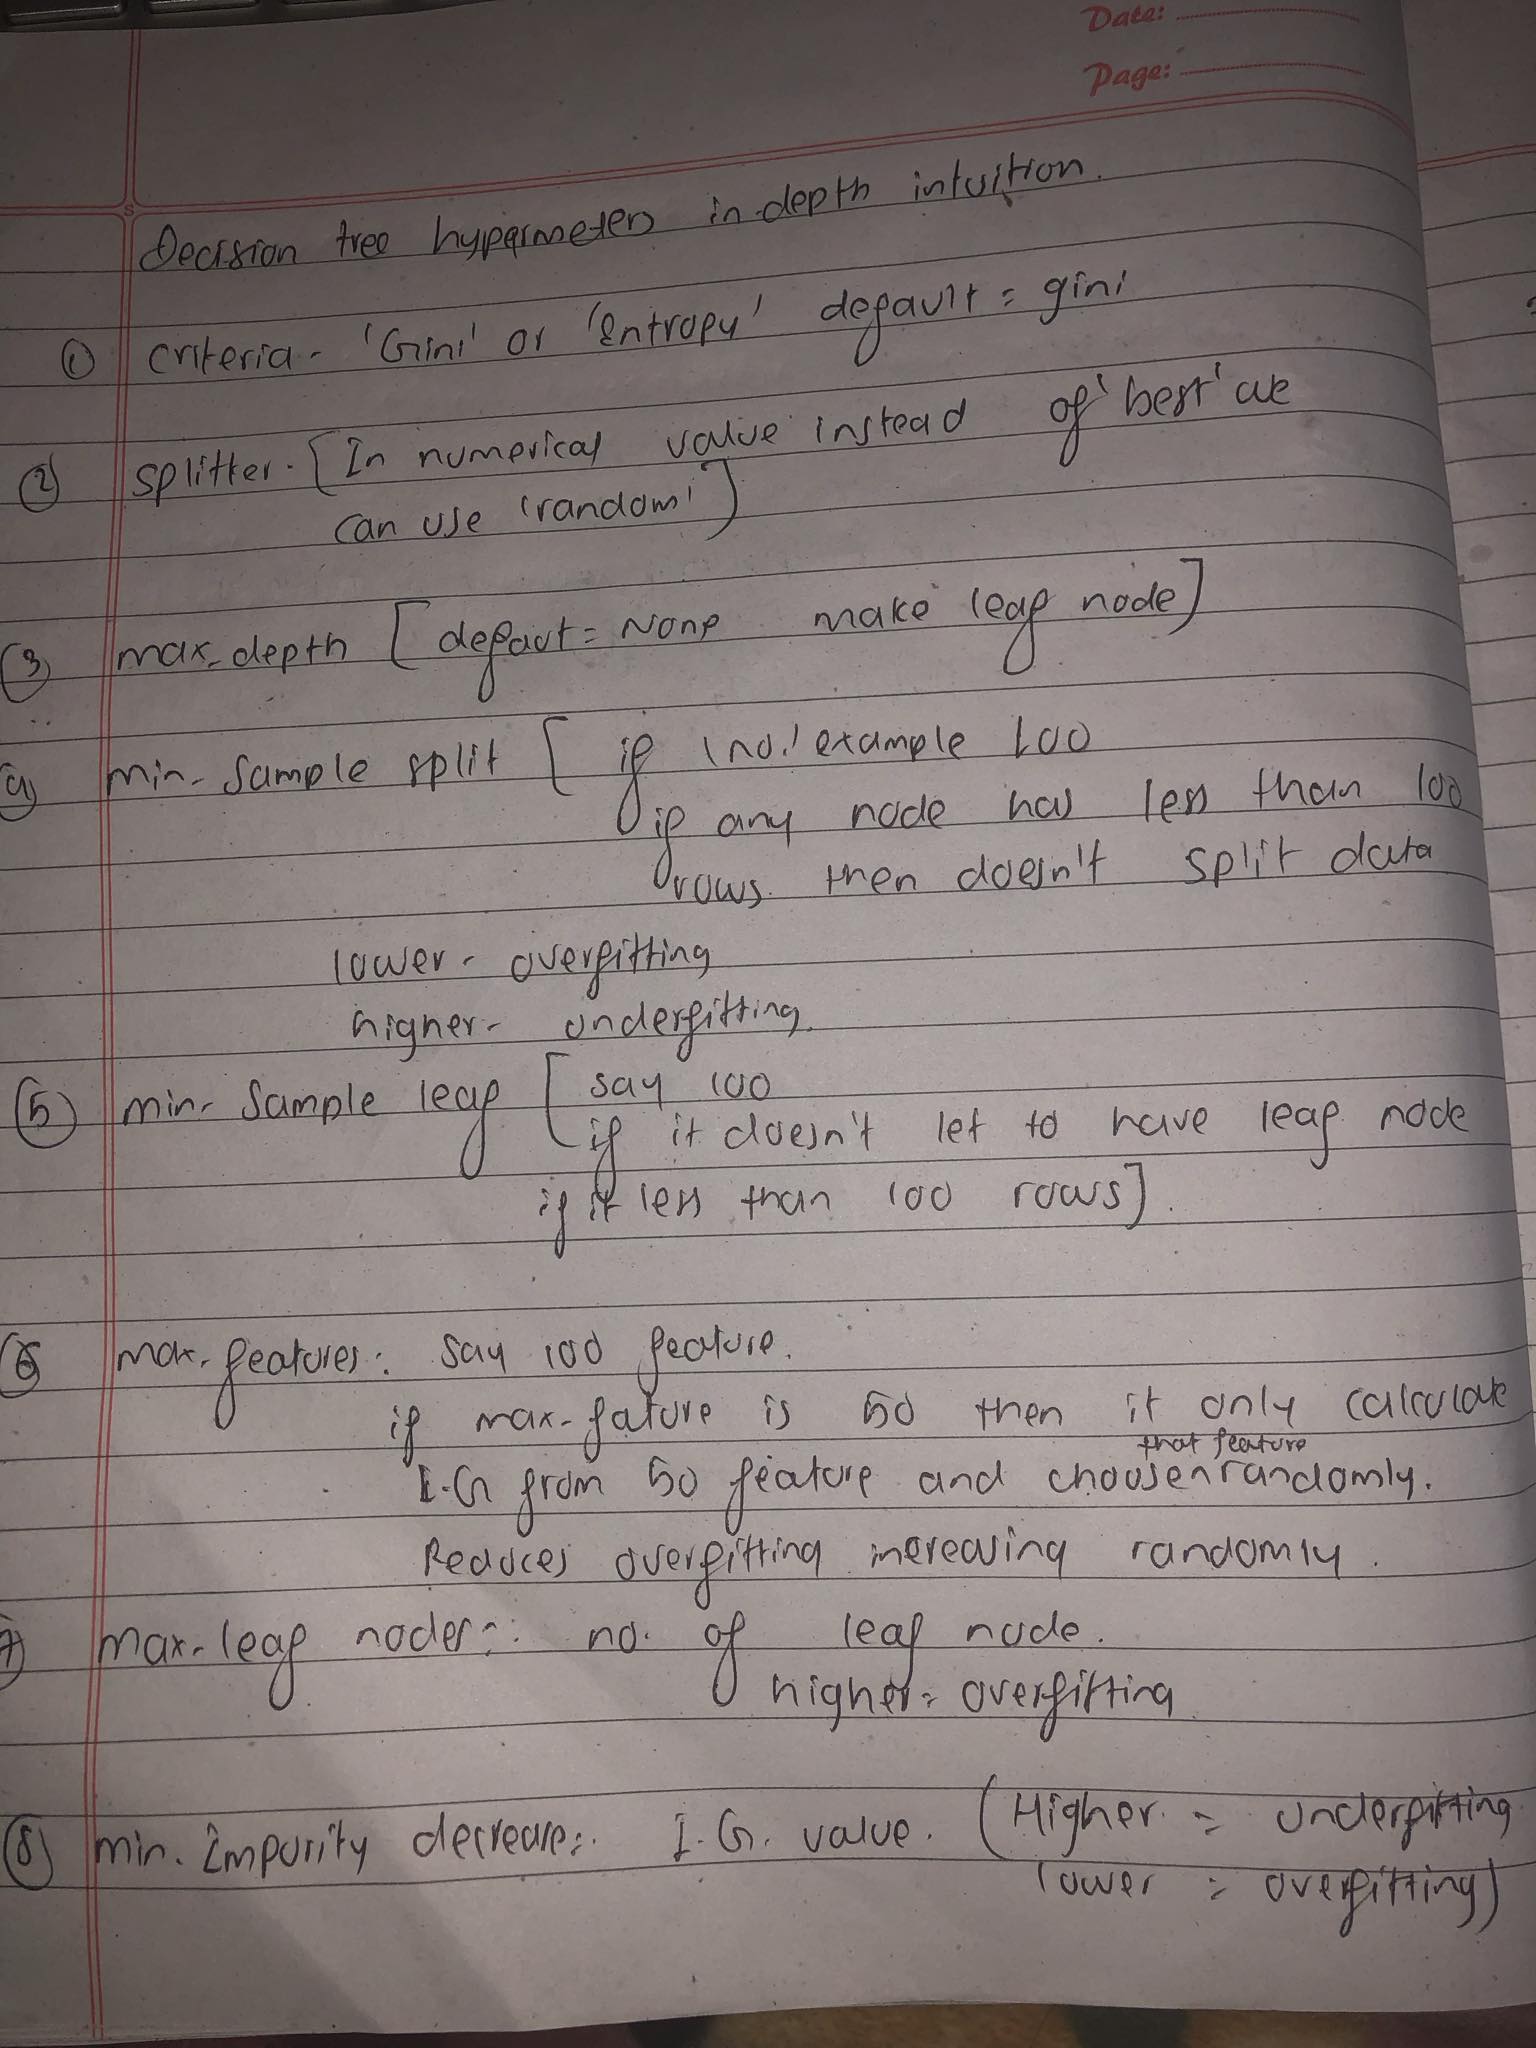 Date:
Page:
Decision tree hyparmeters in-depth intuition.
① criteria - 'Gini' or 'Entropy' default = gini
② splitter - [In numerical value instead of 'best' we
can use 'random']
③ max_depth [defaut = None make leaf node]
④ min_Sample split [if 'no.' example 100
if any node has less than 100
rows. then doesn't split data
lower - overfitting
higher - underfitting.
⑤ min_ Sample leaf [say 100
if it doesn't let to have leaf node
if it less than 100 rows].
⑥ max_features: say 100 feature.
if max_fature is 50 then it only calculate
I.G from 50 feature and choosen that feature randomly.
Reduces overfitting increasing randomly.
7) max_leaf nodes:: no. of leaf node.
higher = overfitting
⑧ min. Impurity decrease:. I.G. value. (Higher = underfitting
lower = overfitting)